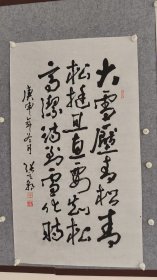 大雪壓青松青
松挺且直要知松
高潔待到雪化時
庚申年冬月